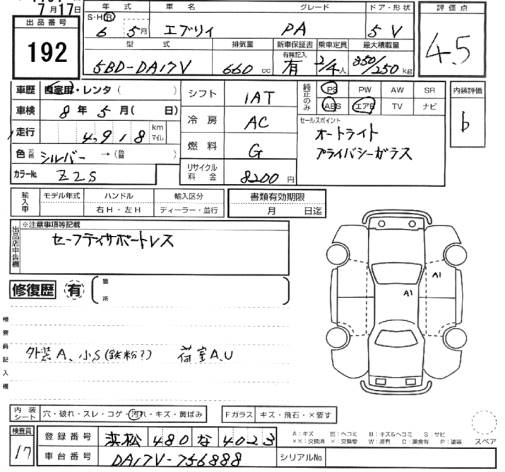 7月17日
出品番号
192
年式 車名 グレード ドア・形状
S・H・R 6 5月 エブリイ PA 5 V
型式 排気量 新車保証書 乗車定員 最大積載量
有無記入
5BD-DA17V 660cc 有 2/4人 350/250kg
評価点
4.5
車歴 自家用・レンタ
車検 8年5月( 日)
走行 4,918 km マイル
色 シルバー →(色替 )
カラーNo. Z2S
シフト 1AT
冷房 AC
燃料 G
リサイクル料金 8200円
純正のみ PS PW AW SR
ABS エアB TV ナビ
セールスポイント
オートライト
プライバシーガラス
内装評価
b
輸入車 モデル年式 ハンドル 輸入区分 書類有効期限
年 右H・左H ディーラー・並行 月 日迄
出品店申告欄 ※注意事項等記載
セーフティサポートレス
修復歴 有 箇所
A1
A1
検査員記入欄
外装A、小S(鉄粉?) 荷室A、U
内装シート 穴・破れ・スレ・コゲ・汚れ・キズ・黄ばみ
Fガラス キズ・飛石・×要す
スペア
検査員 17
登録番号 浜松 480 な 4023
車台番号 DA17V-756888 シリアルNo.